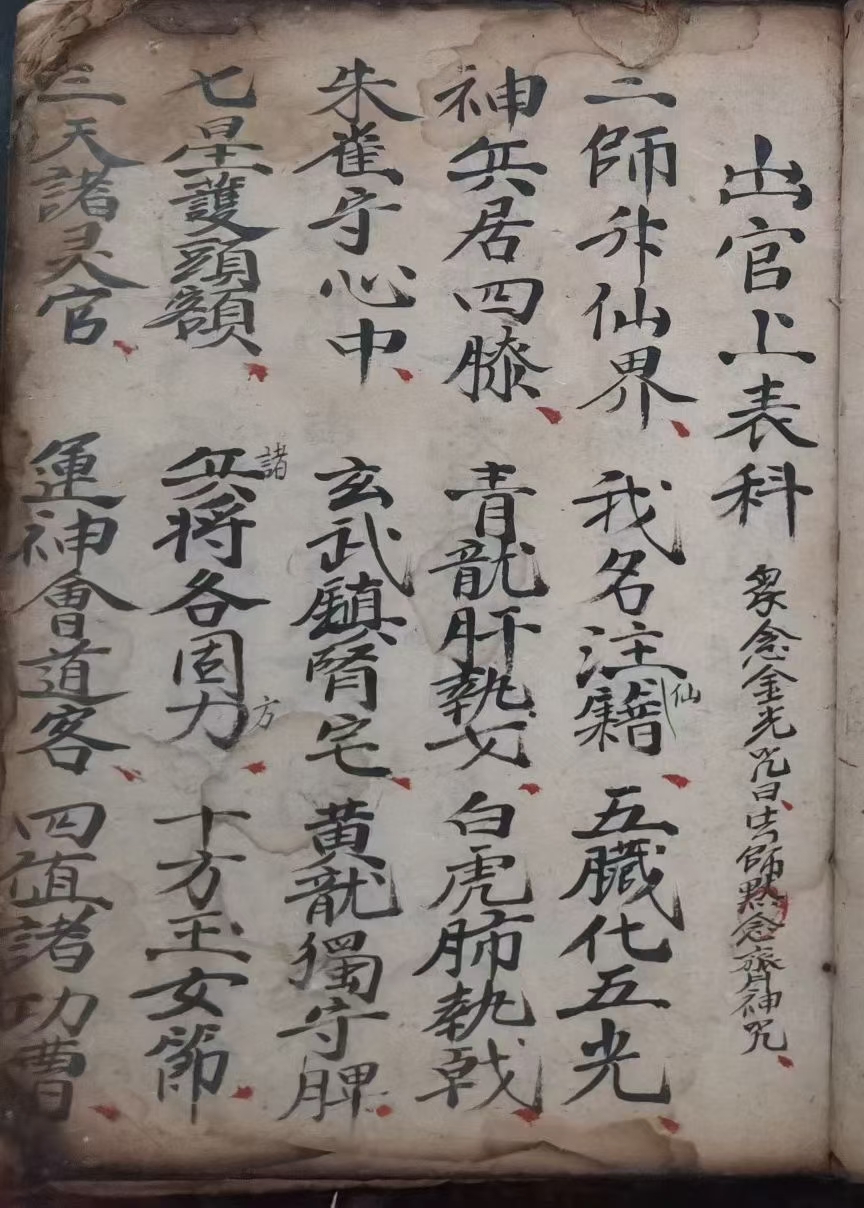 出官上表科 衆念金光咒曰法師默念齋神咒
二師升仙界 我名注仙籍 五臟化五光
神兵居四膝 青龍肝執 白虎肺執戟
朱雀守心中 玄武鎮腎宅 黄龍獨守脾
七星護頭額 諸兵将各固力方 十方玉女節
三天諸灵官 運神會道客 四值諸功曹